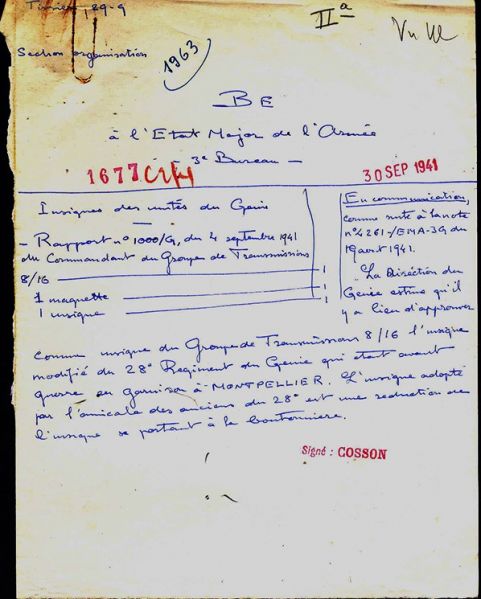 29-9
IIa
Vu
Section organisation
1963
BE
à l'Etat Major de l'Armée
- 3e Bureau -
1677
30 SEP 1941
Insignes des unités du Génie
- Rapport n° 1000/G, du 4 septembre 1941
du Commandant du Groupe de Transmissions
8/16 1
1 maquette 1
1 insigne 1
En communication,
comme suite à la note
n° 4261-/EMA-3G du
19 aout 1941.
La Direction du
Génie estime qu'il
y a lieu d'approuver
comme insigne du Groupe de Transmissions 8/16 l'insigne
modifié du 28e Regiment du Genie qui etait avant
guerre en garnison à MONTPELLIER. L'insigne adopté
par l'amicale des anciens du 28e est une reduction de
l'insigne se portant à la boutonniere.
Signé : COSSON